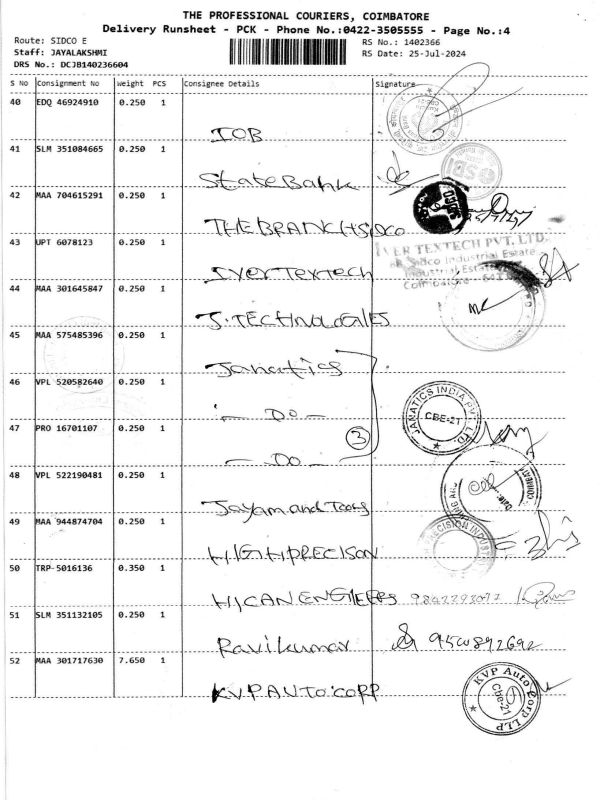 THE PROFESSIONAL COURIERS, COIMBATORE
Delivery Runsheet - PCK - Phone No.:0422-3505555 - Page No.:4
Route: SIDCO E
RS No.: 1402366
Staff: JAYALAKSHMI
RS Date: 25-Jul-2024
DRS No.: DCJB140236604
S No Consignment No Weight PCS Consignee Details Signature
40 EDQ 46924910 0.250 1
IOB
41 SLM 351084665 0.250 1
State Bank
SIDBI
42 MAA 704615291 0.250 1
THE BRANCH SIDCO
43 UPT 6078123 0.250 1
IVER TEXTECH PVT. LTD.
Sidco Industrial Estate
Industrial Estate
Coimbatore - 641
Iver Textech
44 MAA 301645847 0.250 1
J. TECHNOLOGIES
45 MAA 575485396 0.250 1
Janatics
46 VPL 520582640 0.250 1
JANATICS INDIA PVT. LTD.
CBE-21
- Do -
47 PRO 16701107 0.250 1
3
- Do -
48 VPL 522190481 0.250 1
Date:
Jayam and Tools
49 MAA 944874704 0.250 1
PRECISION INDUST
HIGH PRECISON
50 TRP-5016136 0.350 1
HICAN ENGIEERS
51 SLM 351132105 0.250 1
Ravikumar 9500892692
52 MAA 301717630 7.650 1
KVP AUTO CORP
KVP Auto Corp LLP
Cbe-21